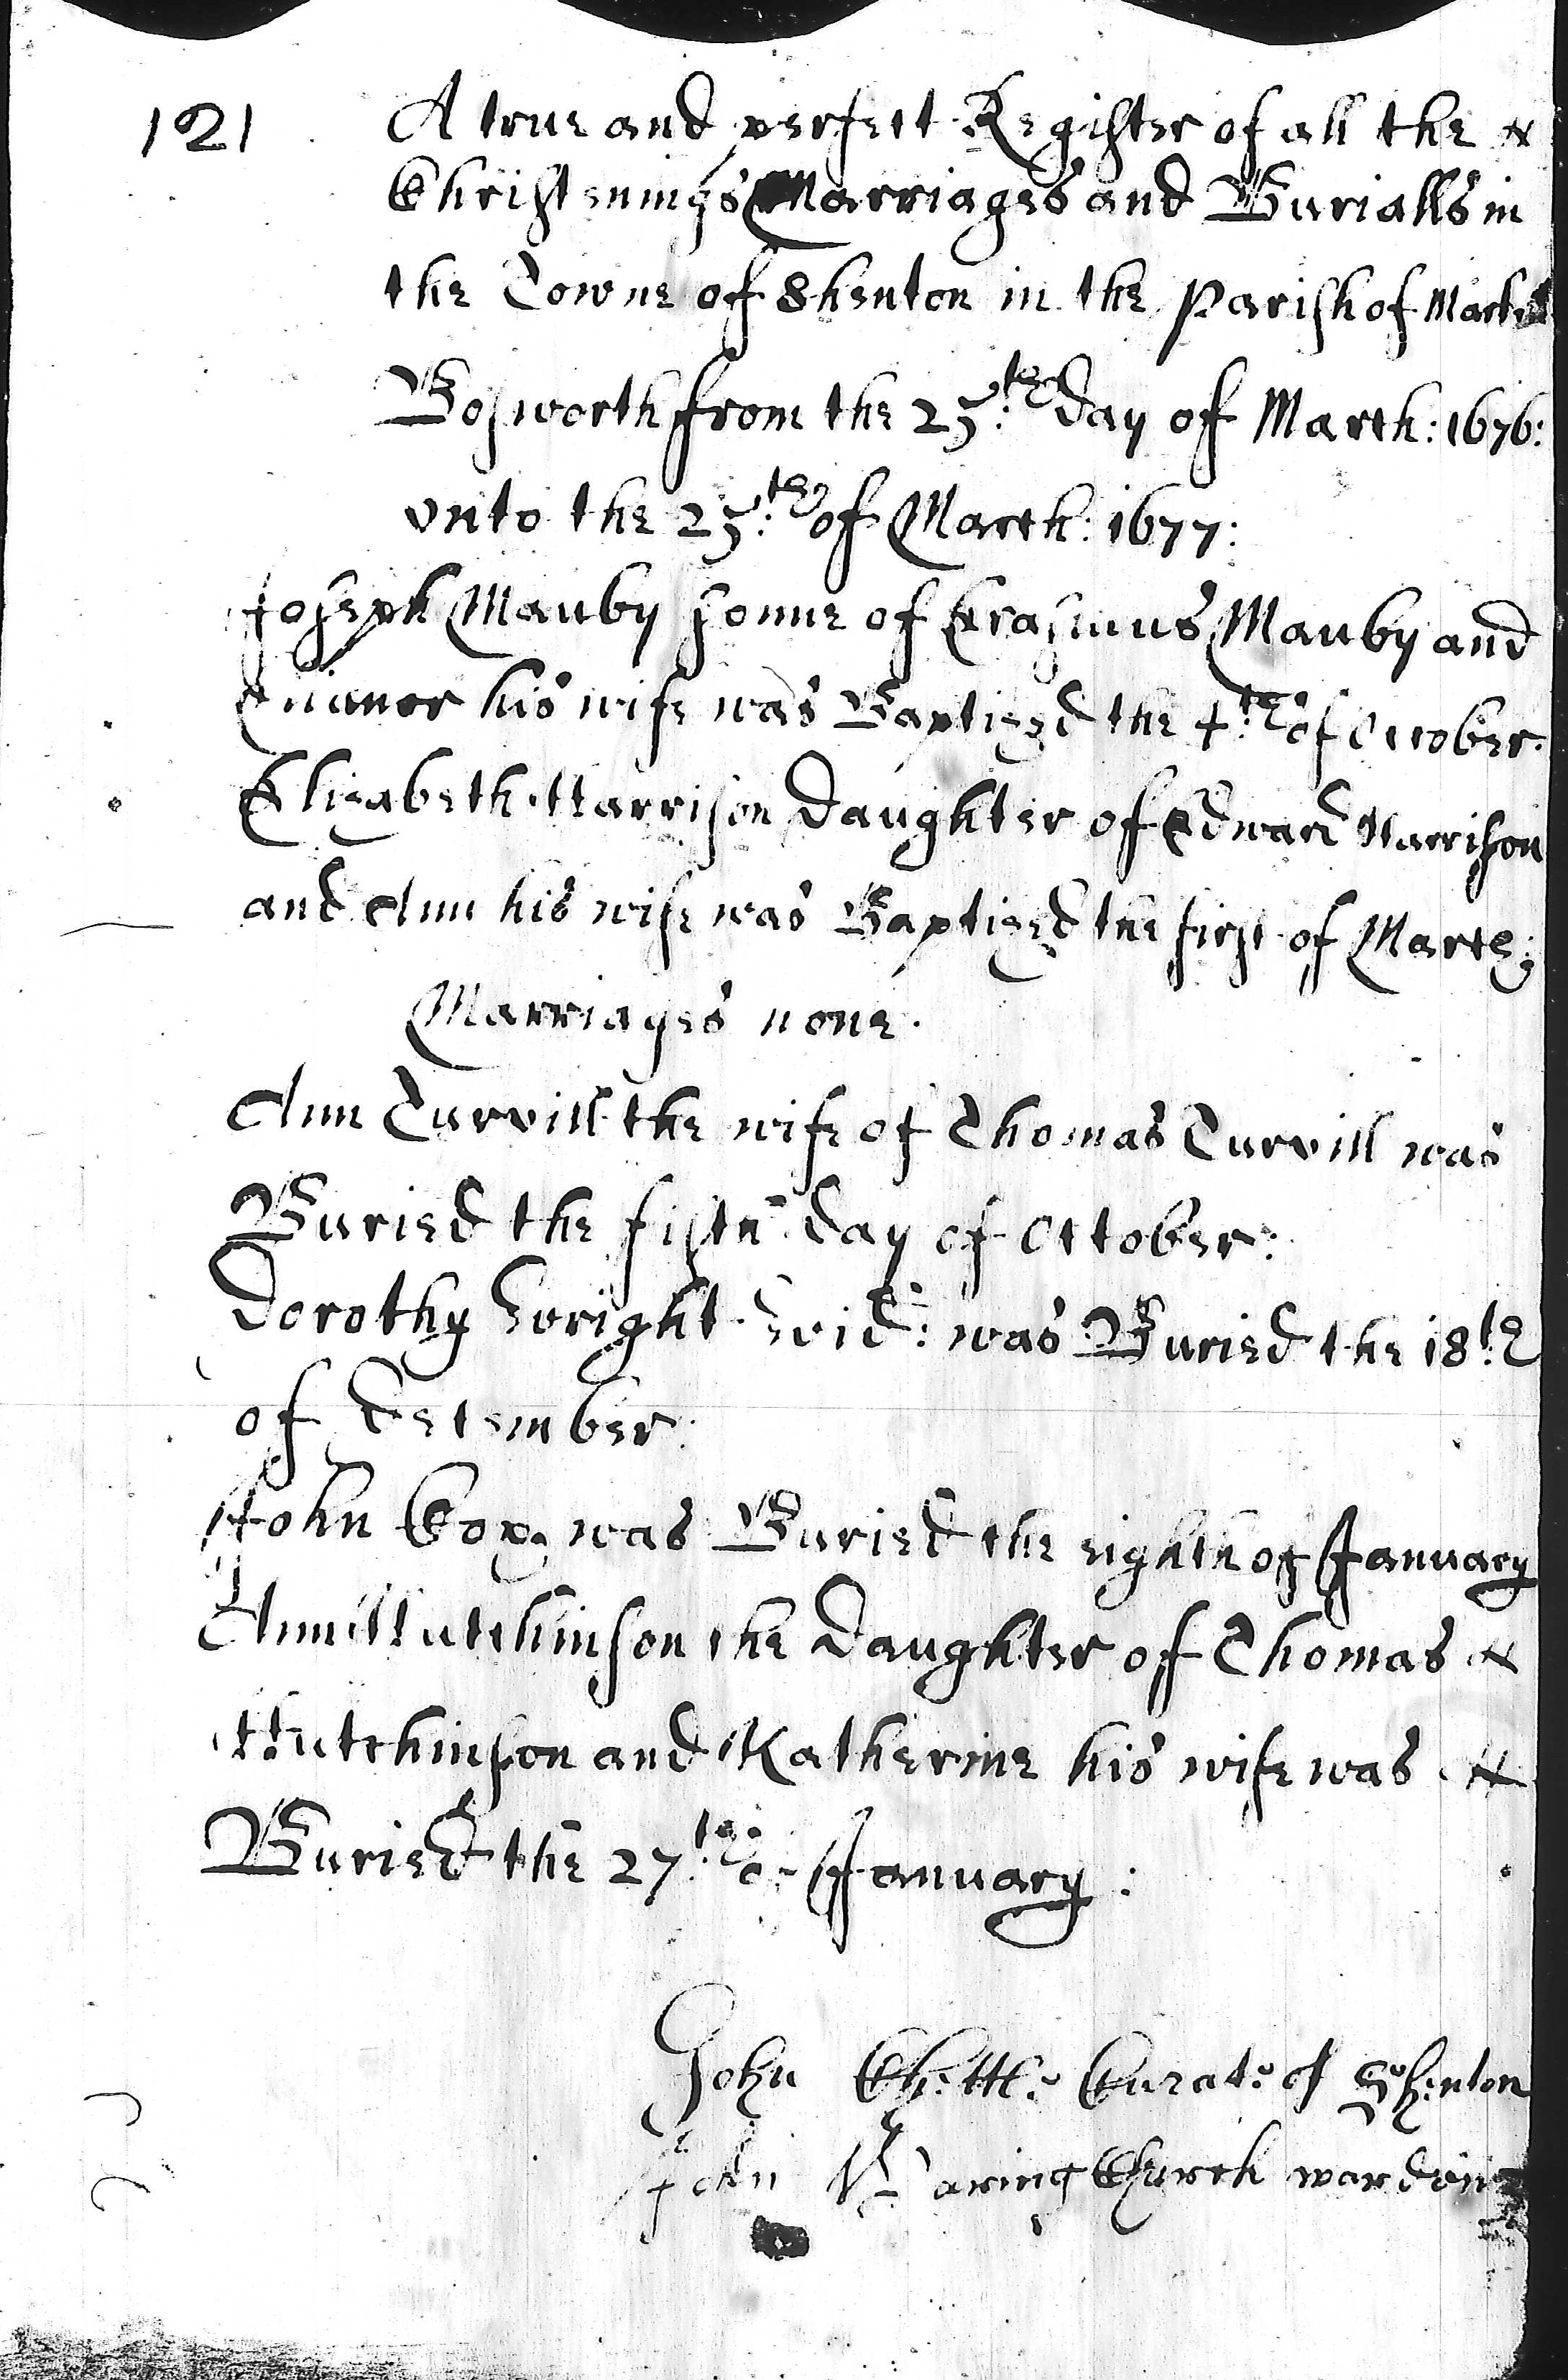 121
A true and perfect Register of all the
Christenings Marriages and Burialls in
the Towne of Shenton in the Parish of Market
Bosworth from the 25:th day of March: 1676:
vnto the 25:th of March: 1677:
Joseph Mauby sonne of Erasmus Mauby and
his wife was Baptized the 4:th of October.
Elizabeth Harrison Daughter of Edward Harrison
and Ann his wife was Baptized the first of March;
Marriages none.
Ann Turvill the wife of Thomas Turvill was
Buried the fifth day of October:
Dorothy Wright Wid: was Buried the 18:th
of December:
John Cox was Buried the eighth of January
Ann Hutchinson the Daughter of Thomas
Hutchinson and Katherine his wife was
Buried the 27:th of January:
John Curate of Shenton
John Church warden